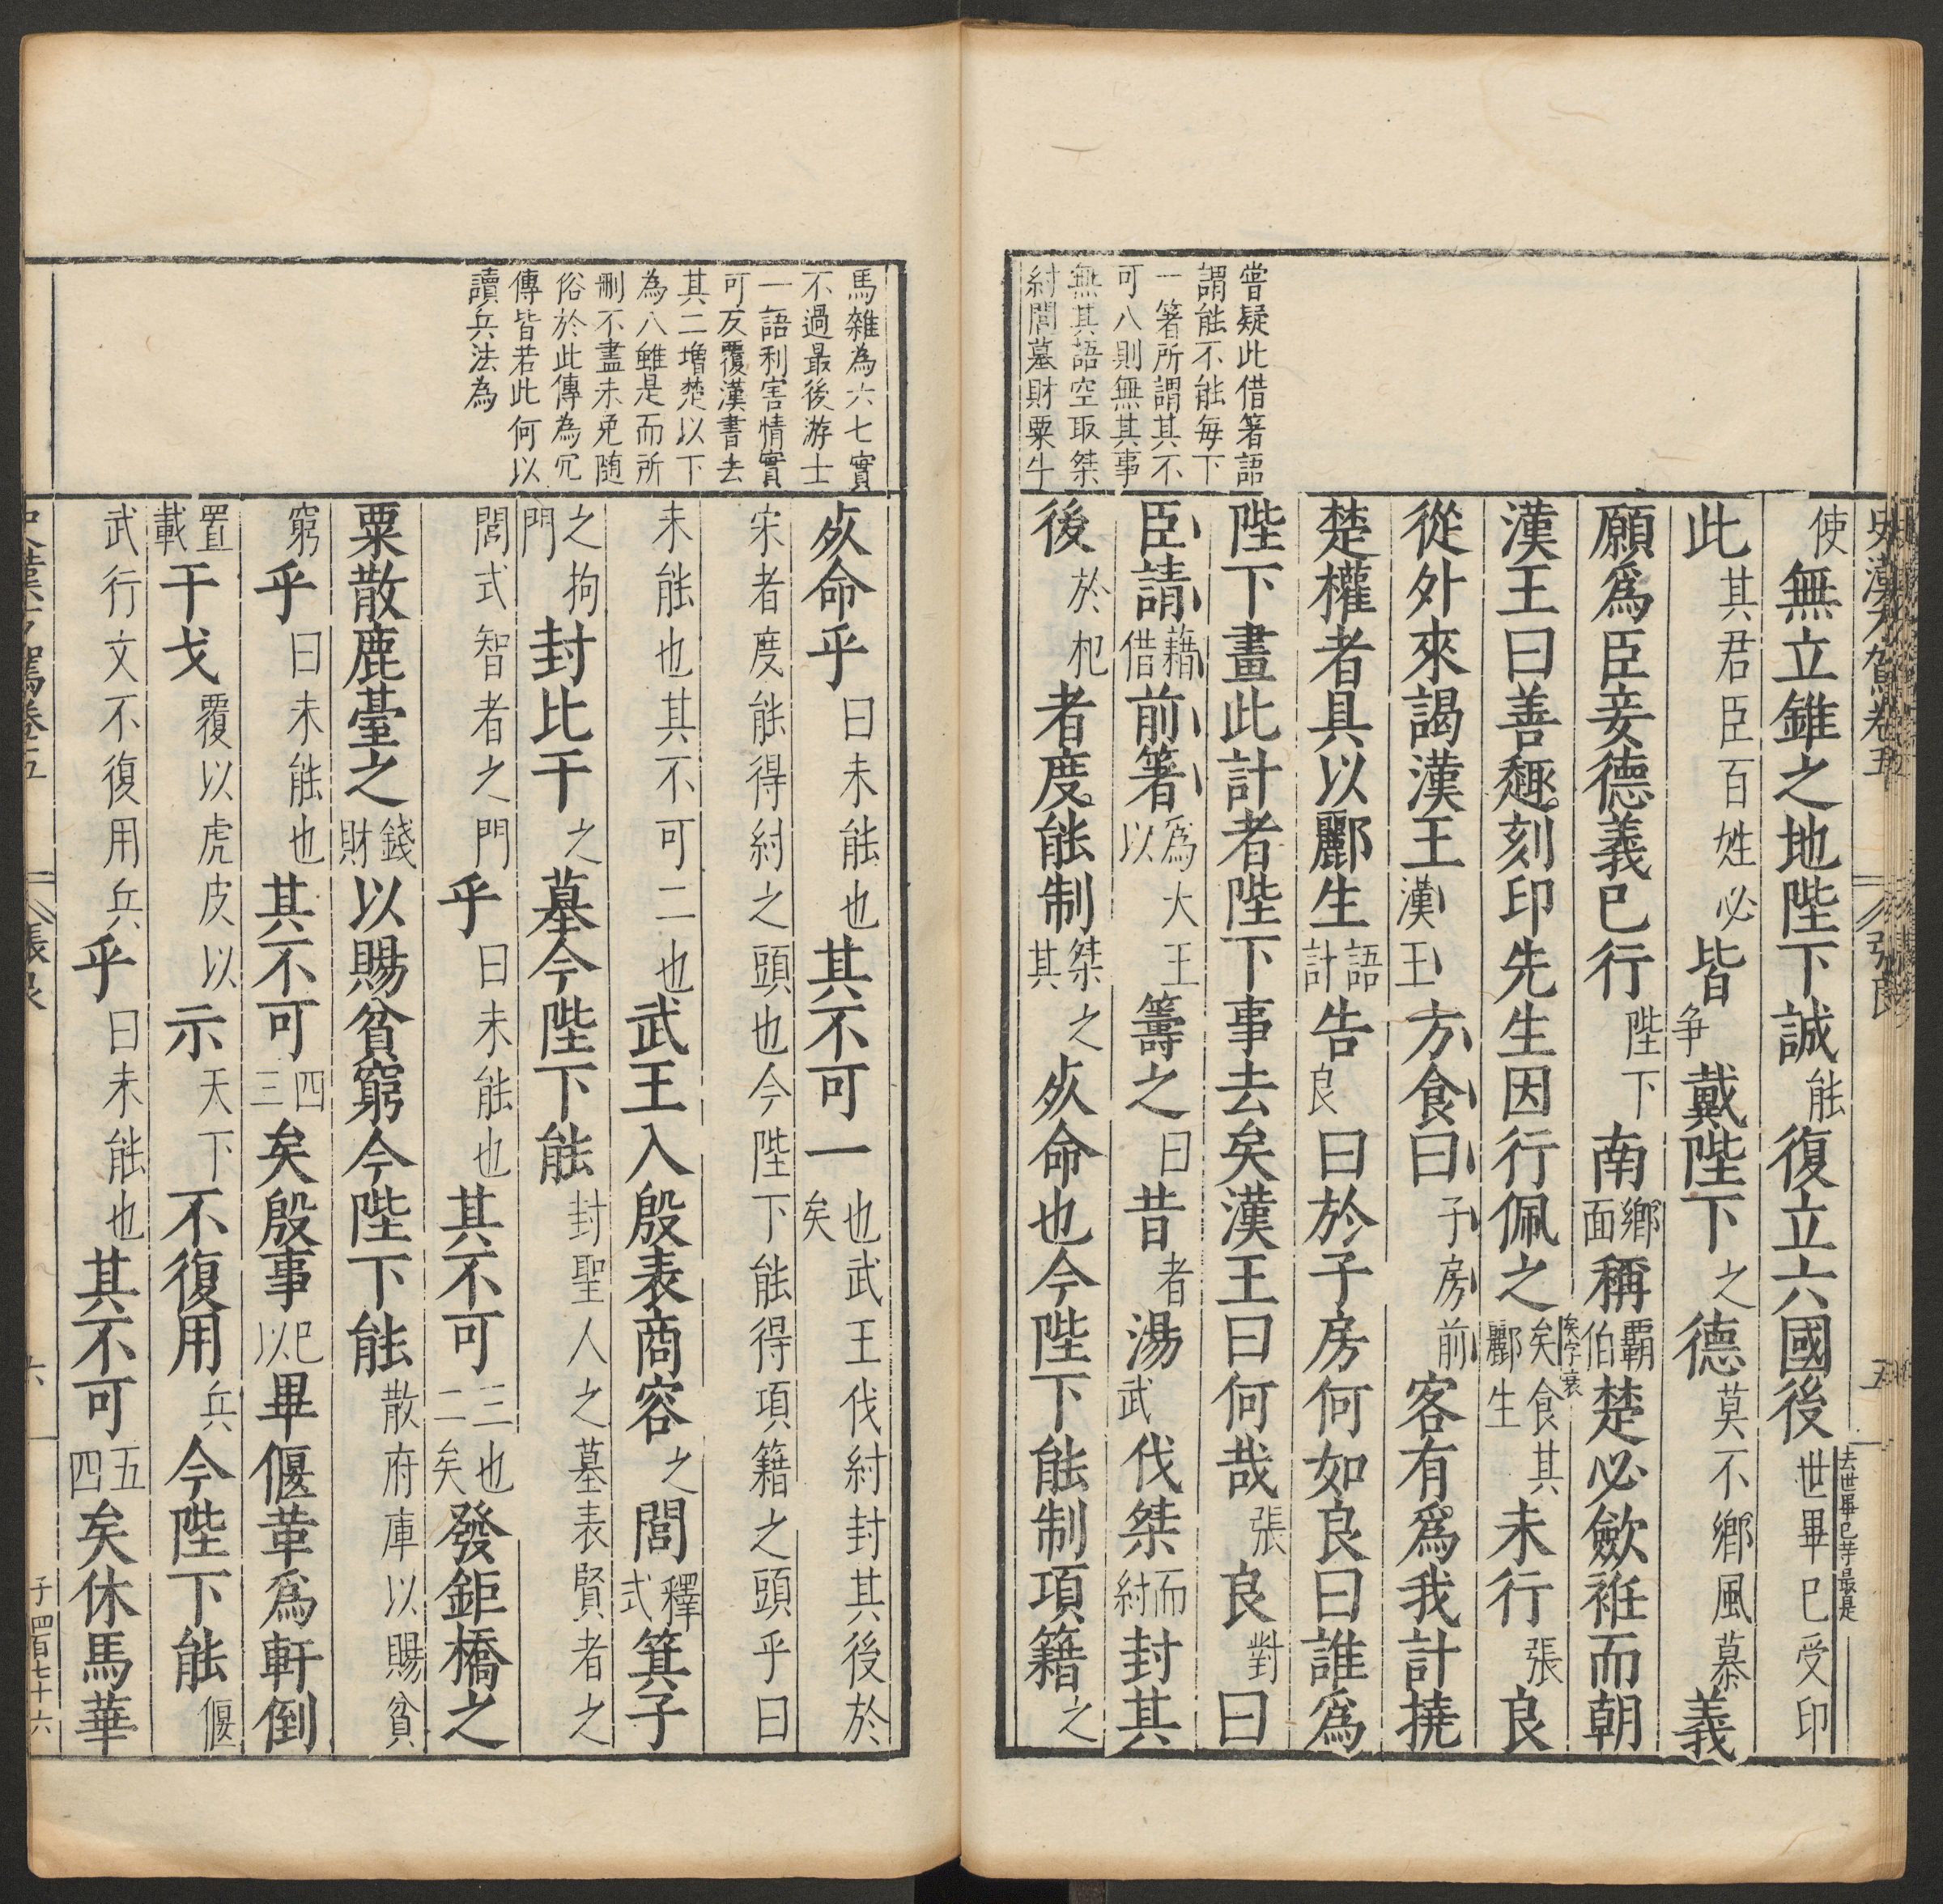 史漢方駕卷五 張良 五
嘗疑此借箸語
謂能不能每下
一箸所謂其不
可八則無其事
無其語空取桀
紂閭墓財粟牛
使無立錐之地陛下誠能復立六國後世畢已受印
去世畢已字最是
此其君臣百姓必皆爭戴陛下之德莫不鄉風慕義
願爲臣妾德義已行陛下南鄉面稱霸伯楚必歛袵而朝
矣字衰
漢王曰善趣刻印先生因行佩之矣食其酈生未行張良
從外來謁漢王漢王方食曰子房前客有爲我計撓
楚權者具以酈生語計告良曰於子房何如良曰誰爲
陛下畫此計者陛下事去矣漢王曰何哉張良對曰
臣請藉借前箸爲以大王籌之曰昔者湯武伐桀而紂封其
後於杞者度能制桀其之死命也今陛下能制項籍之
馬雜為六七實
不過最後游士
一語利害情實
可反覆漢書去
其二增楚以下
為八雖是而所
刪不盡未免随
俗於此傳為冗
傳皆若此何以
讀兵法為
死命乎曰未能也其不可一也矣武王伐紂封其後於
宋者度能得紂之頭也今陛下能得項籍之頭乎曰
未能也其不可二也武王入殷表商容之閭釋式箕子
之門拘封比干之墓今陛下能封聖人之墓表賢者之
閭式智者之門乎曰未能也其不可三也二矣發鉅橋之
粟散鹿臺之錢財以賜貧窮今陛下能散府庫以賜貧
窮乎曰未能也其不可四三矣殷事已以畢偃革爲軒倒
置載干戈覆以虎皮以示天下不復用兵今陛下能偃
武行文不復用兵乎曰未能也其不可五四矣休馬華
史漢方駕卷五 張良 六 子四百七十六